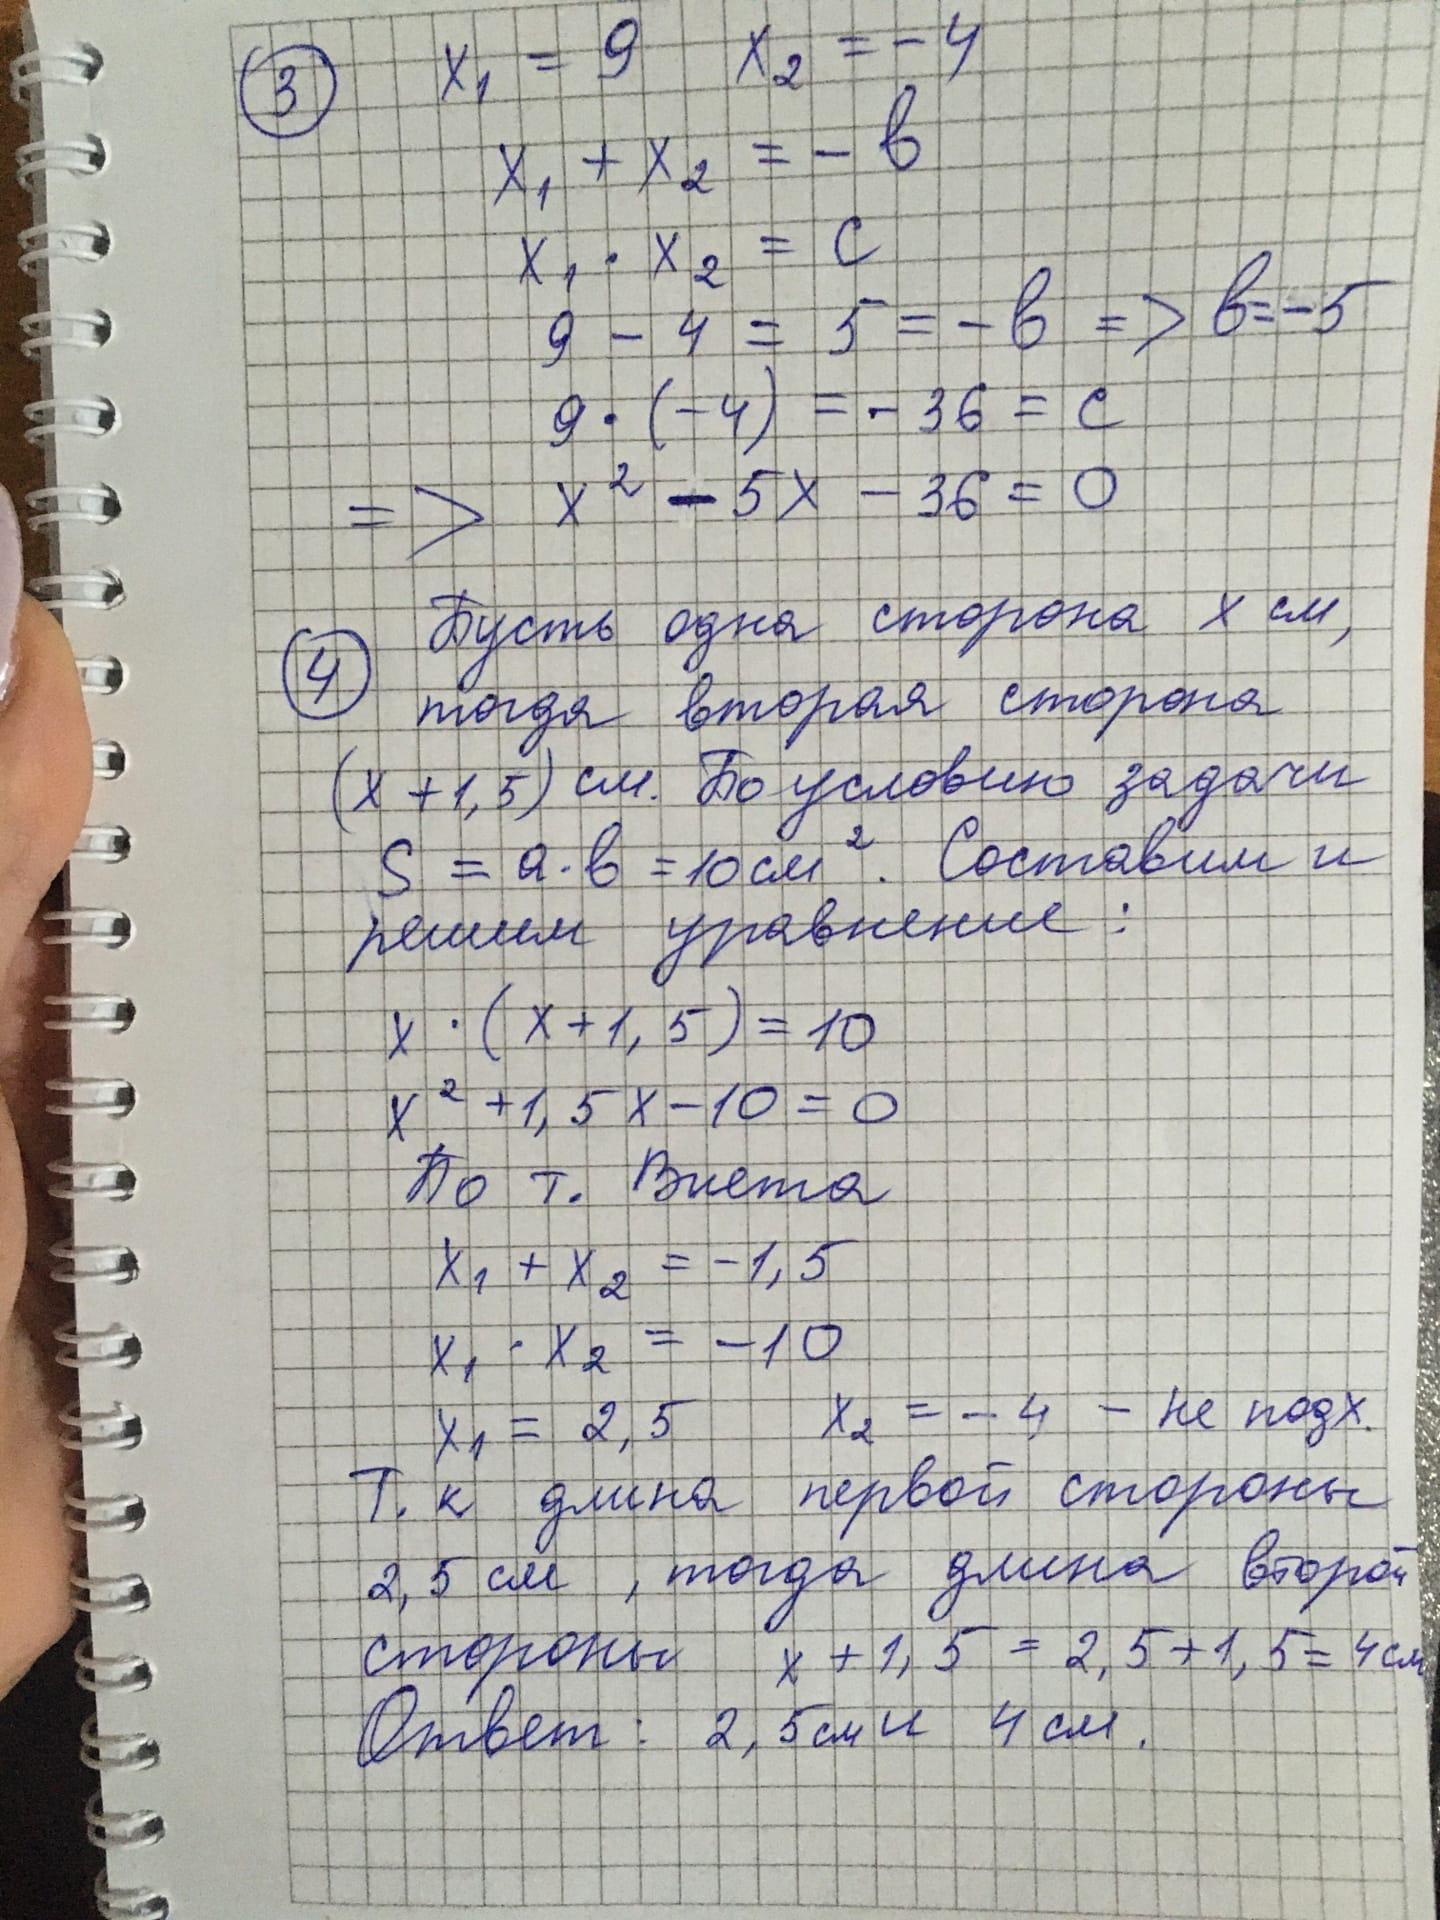 3 x₁ = 9 x₂ = -4
x₁ + x₂ = - в
x₁ · x₂ = c
9 - 4 = 5 = - в => в = -5
9 · (-4) = - 36 = c
=> x² - 5x - 36 = 0
4 Пусть одна сторона x см,
тогда вторая сторона
(x + 1,5) см. По условию задачи
S = a · в = 10 см². Составим и
решим уравнение:
x · (x + 1,5) = 10
x² + 1,5x - 10 = 0
По т. Виета
x₁ + x₂ = -1,5
x₁ · x₂ = -10
x₁ = 2,5 x₂ = -4 - не подх.
Т. к длина первой стороны
2,5 см , тогда длина второй
стороны x + 1,5 = 2,5 + 1,5 = 4 см
Ответ: 2,5 см и 4 см.